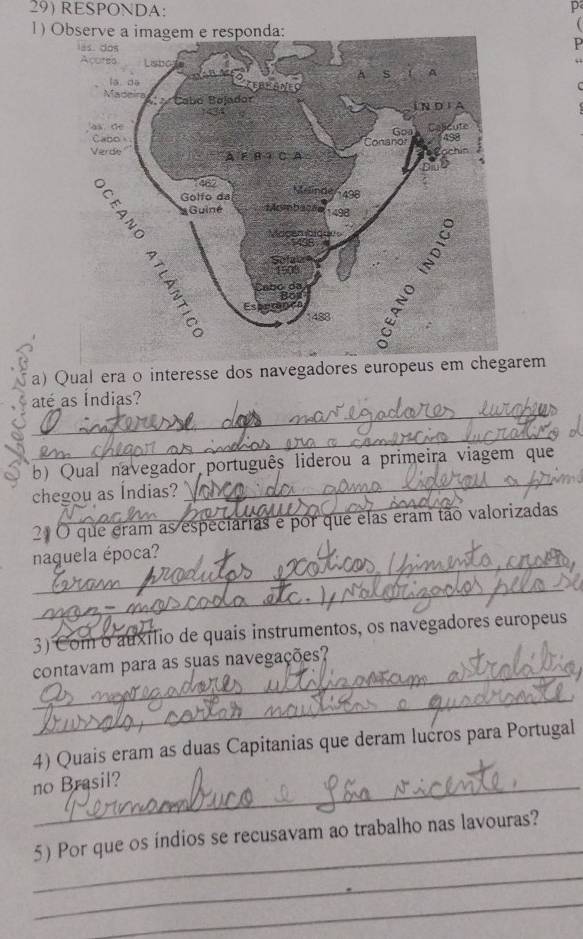 29) RESPONDA:
1) Observe a imagem e responda:
Ias. dos
Açores
Lisboa
MAR MEDITERRÂNEO
A S I A
Ia. da
Madeira
Cabo Bojador
1434
ÍNDIA
Ias. de
Cabo
Verde
Goa
Calicute
498
Conanor
Cochin
Diu
A F R I C A
1462
Golfo da
Guiné
Melinde 1498
Mombaça 1498
Moçambique
1498
Sofala
1500
Cabo da
Boa
Esperança
1488
OCEANO ATLÂNTICO
OCEANO ÍNDICO
a) Qual era o interesse dos navegadores europeus em chegarem
até as Índias?
O interesse dos navegadores europeus
em chegar as indias era o comercio lucrativo d
especiarias.
b) Qual navegador português liderou a primeira viagem que
chegou as Índias? Vasco da gama liderou a prim
Viagem portuguesa as indias
2) O que eram as especiarias e por que elas eram tão valorizadas
naquela época?
Eram produtos exoticos, (pimenta, cravo,
noz-moscada etc.), valorizados pelo se
Sabor
3) Com o auxílio de quais instrumentos, os navegadores europeus
contavam para as suas navegações?
Os navegadores ultilizavam astrolábio,
bussola, cartas nauticas e quadrante
4) Quais eram as duas Capitanias que deram lucros para Portugal
no Brasil?
Permambuco e São vicente.
5) Por que os índios se recusavam ao trabalho nas lavouras?